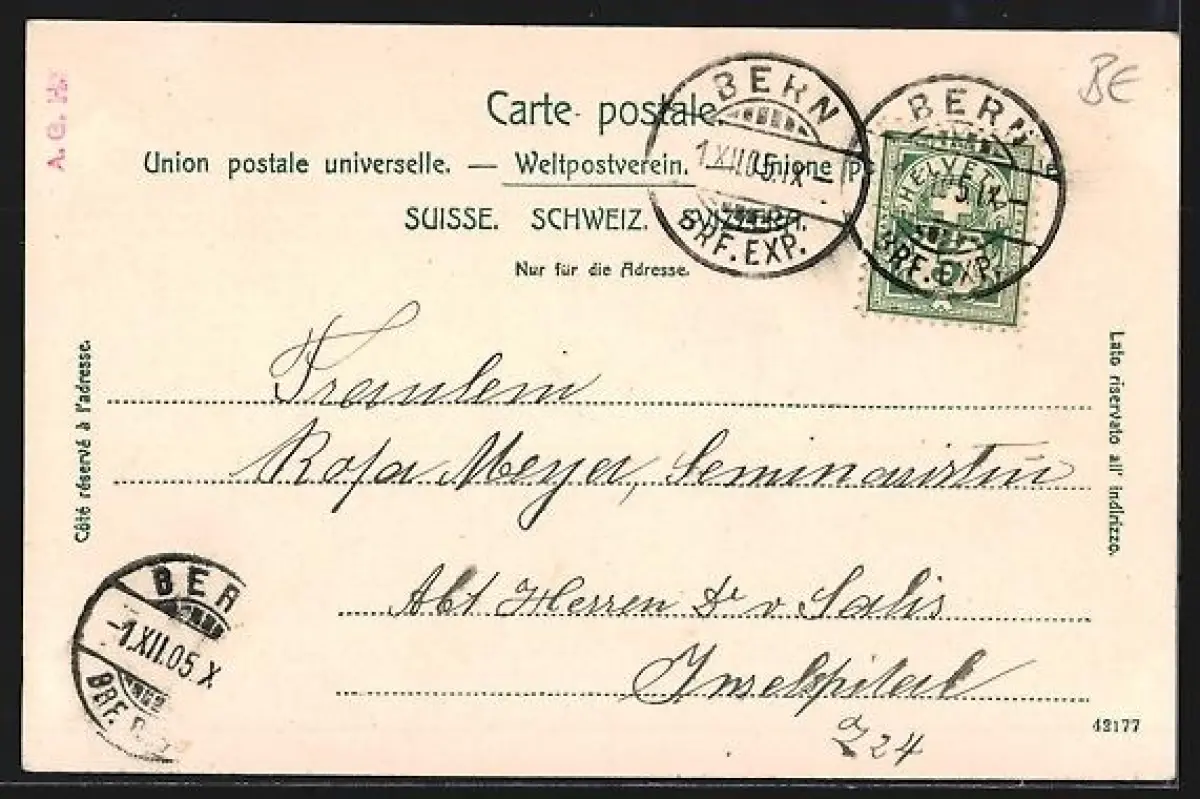 A. G. H.
BE
Carte postale.
Union postale universelle. — Weltpostverein. — Unione
SUISSE. SCHWEIZ. SVIZZERA.
Nur für die Adresse.
BERN
1.XII.05.IX–
BRF. EXP.
BERN
5.IX–
BRF. EXP.
HELVETIA
Côté réservé à l'adresse.
Lato riservato all' indirizzo.
Fraulein
Rosa Meyer, Seminaristin
Abt Herren Dr v Salis
Inselspital
Z 24
BER
-1.XII.05.X
BRF.
42177